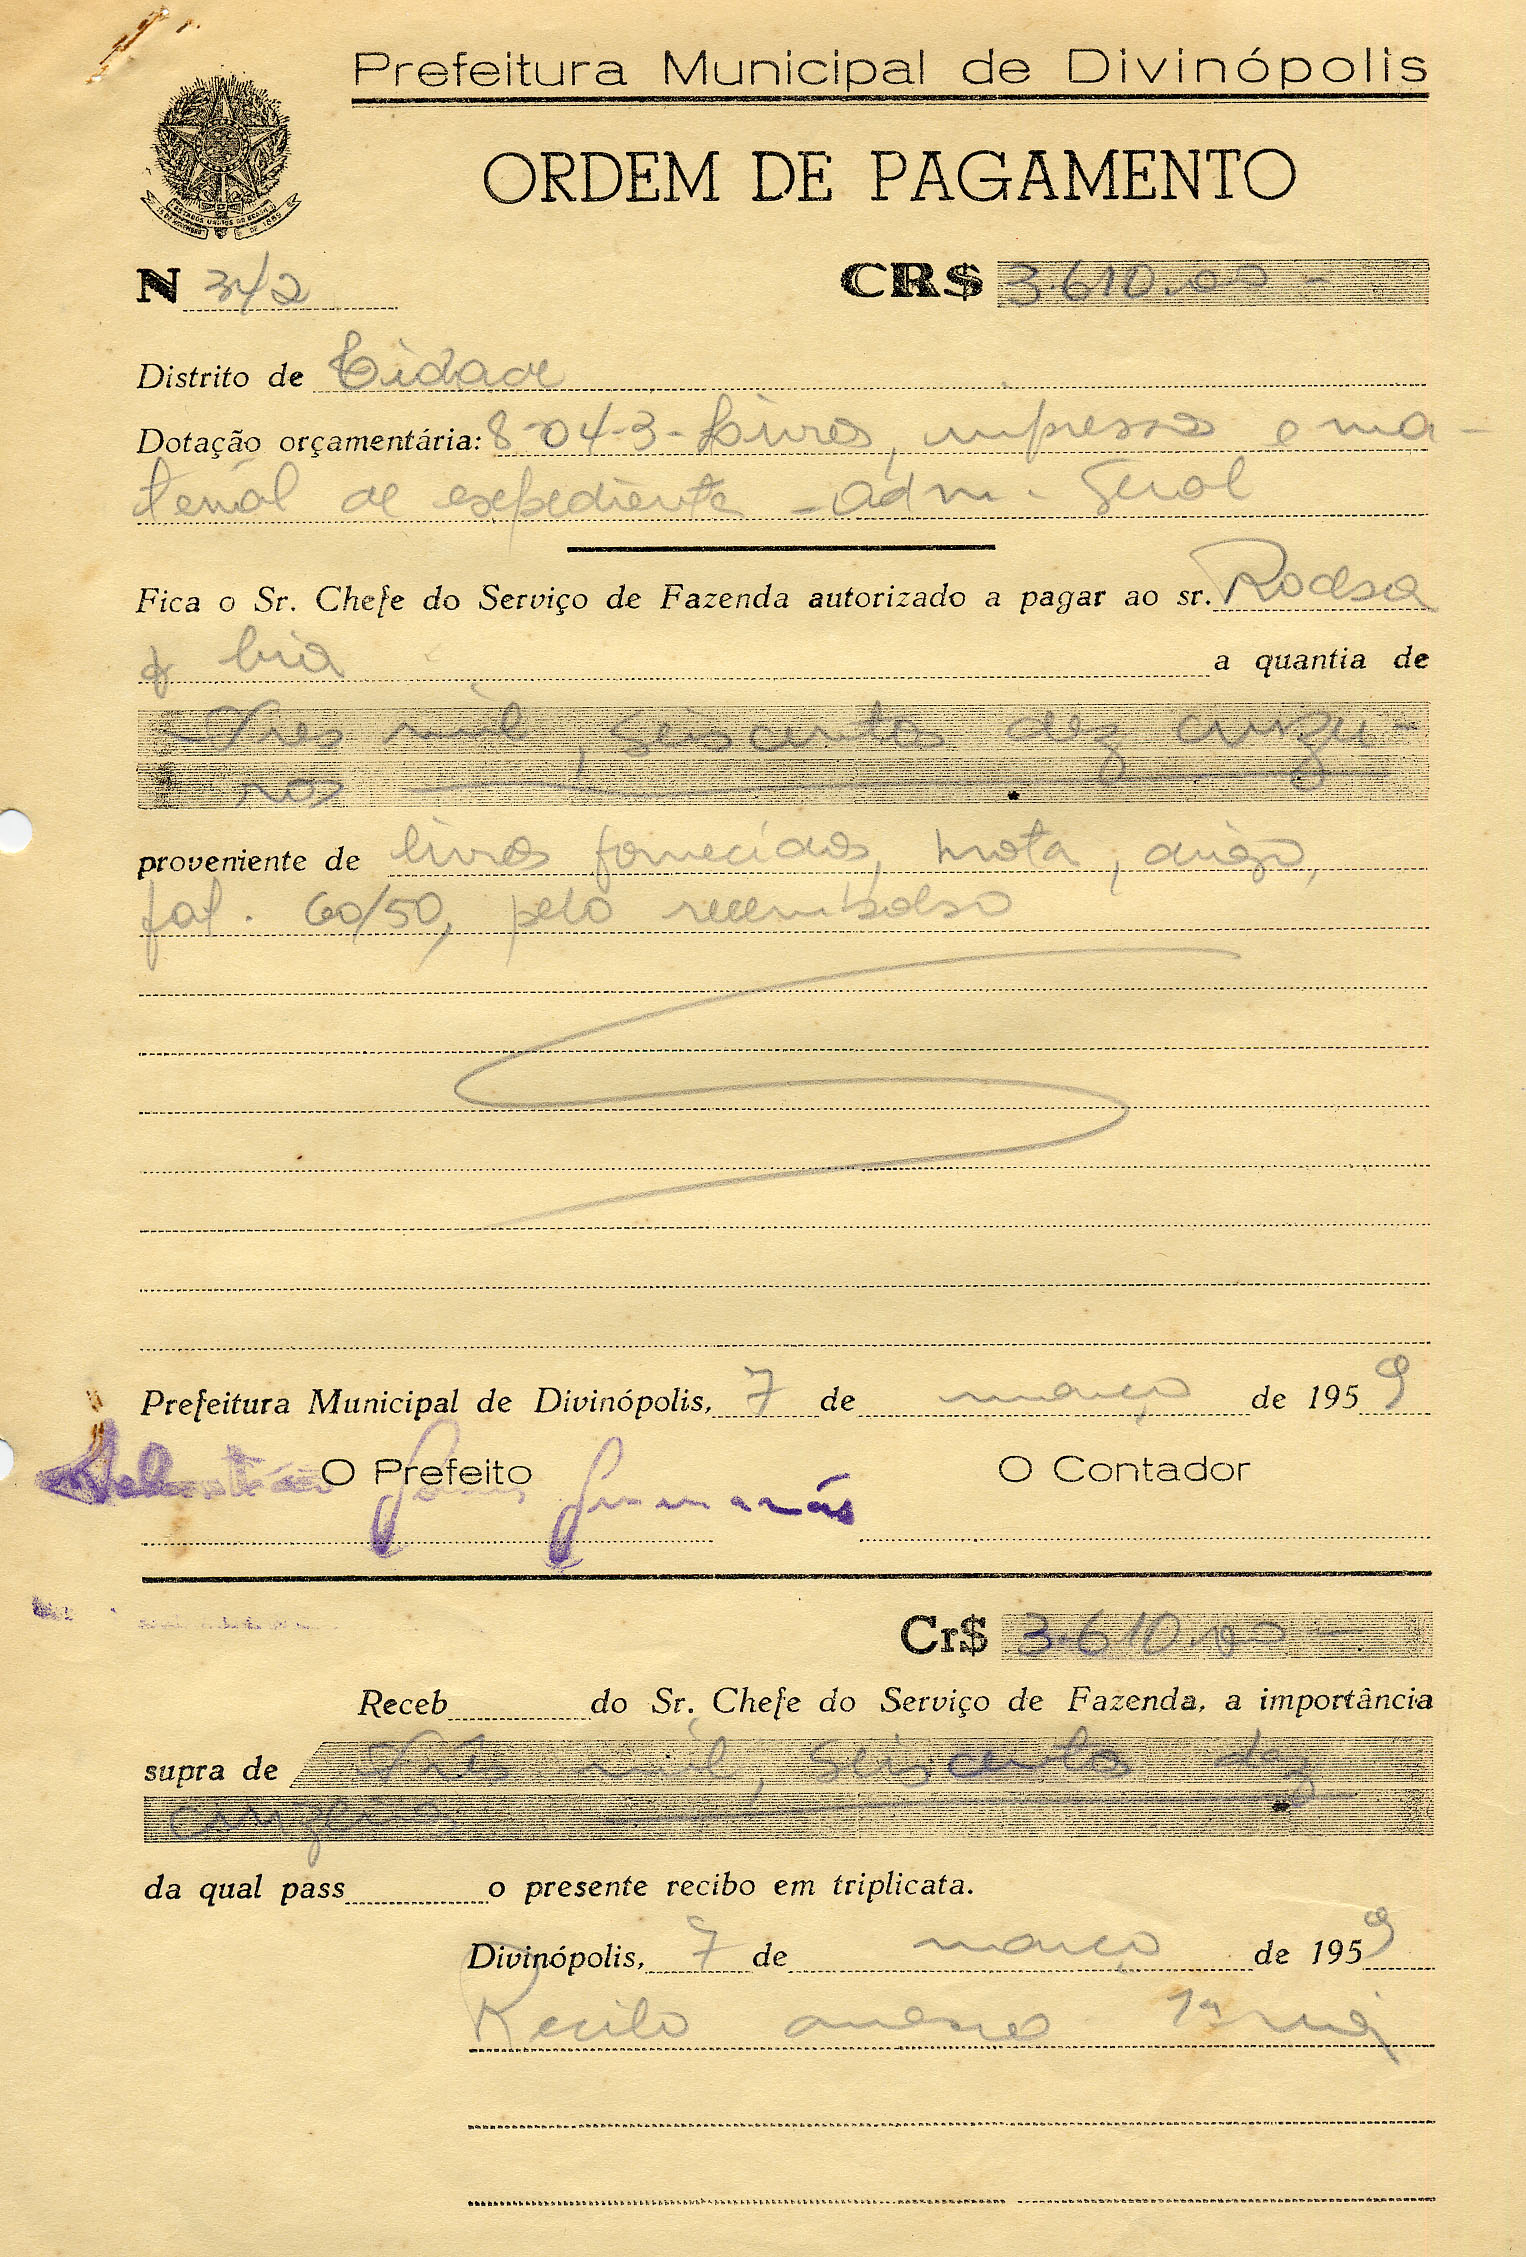 Prefeitura Municipal de Divinópolis
ORDEM DE PAGAMENTO
ESTADOS UNIDOS DO BRASIL
15 DE NOVEMBRO DE 1889
N 342 CR$ 3.610.00 -
Distrito de Cidade
Dotação orçamentária: 8-04-3- Livros, impressos e ma-
terial de expediente - adm. Geral
Fica o Sr. Chefe do Serviço de Fazenda autorizado a pagar ao sr.
& Cia a quantia de
Tres mil, seiscentos dez cruzei-
ros
proveniente de livros fornecidos,
fat. 60/50, pelo reembolso
Prefeitura Municipal de Divinópolis, 7 de março de 1959
O Prefeito O Contador
Sebastião Gomes Guimarães
Cr$ 3.610.00 -
Receb do Sr. Chefe do Serviço de Fazenda, a importância
supra de Três mil, seiscentos dez
cruzeiros
da qual pass o presente recibo em triplicata.
Divinópolis, 7 de março de 1959
Recibo anexo 1ª via